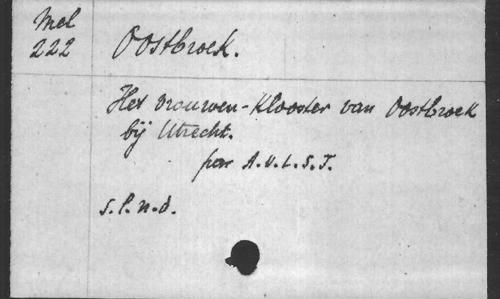 Mel
222
Oostbroek.
Het vrouwen-Klooster van Oostbroek
bij Utrecht.
par A.v.L.S.T.
s.l.n.d.